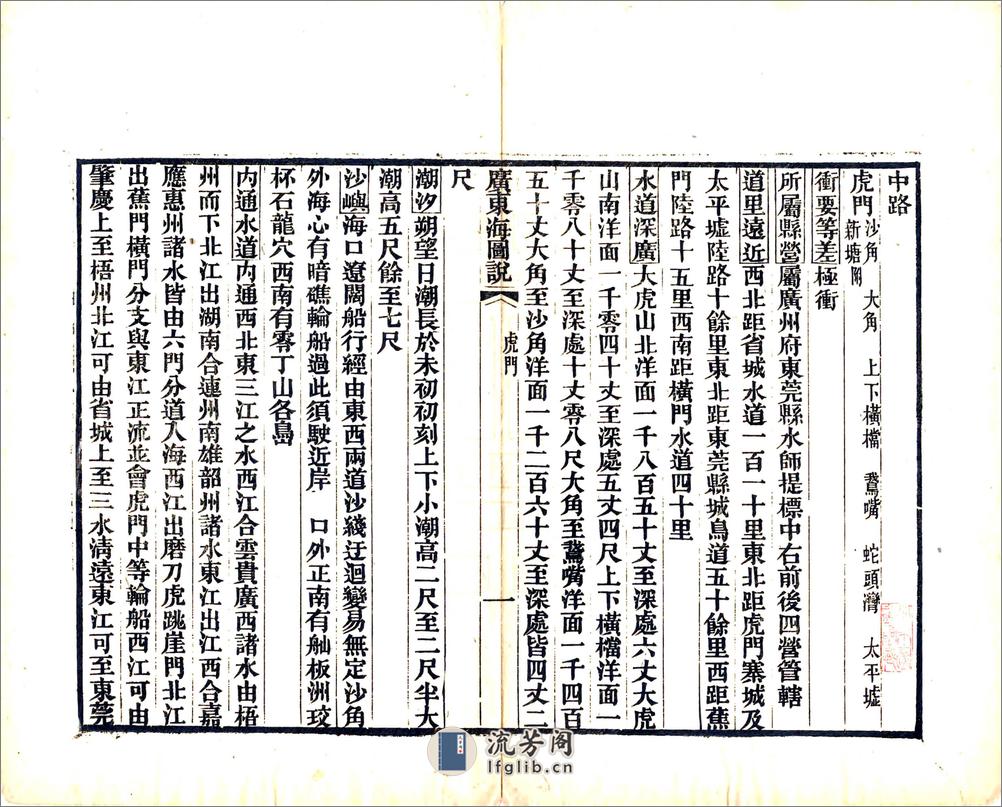 中路
虎門 沙角 大角 上下橫檔 鵞嘴 蛇頭灣 太平墟
新塘附
衝要等差極衝
所屬縣營屬廣州府東莞縣水師提標中右前後四營管轄
道里遠近西北距省城水道一百一十里東北距虎門寨城及
太平墟陸路十餘里東北距東莞縣城鳥道五十餘里西距蕉
門陸路十五里西南距橫門水道四十里
水道深廣大虎山北洋面一千八百五十丈至深處六丈大虎
山南洋面一千零四十丈至深處五丈四尺上下橫檔洋面一
千零八十丈至深處十丈零八尺大角至鵞嘴洋面一千四百
五十丈大角至沙角洋面一千二百六十丈至深處皆四丈二
廣東海圖說 虎門 一
尺
潮汐朔望日潮長於未初初刻上下小潮高二尺至二尺半大
潮高五尺餘至七尺
沙嶼海口遼闊船行經由東西兩道沙綫迂迴變易無定沙角
外海心有暗礁輪船過此須駛近岸 口外正南有舢板洲珓
杯石龍穴西南有零丁山各島
內通水道內通西北東三江之水西江合雲貴廣西諸水由梧
州而下北江出湖南合連州南雄韶州諸水東江出江西合嘉
應惠州諸水皆由六門分道入海西江出磨刀虎跳崖門北江
出蕉門橫門分支與東江正流並會虎門中等輪船西江可由
肇慶上至梧州北江可由省城上至三水清遠東江可至東莞
流芳阁
lfglib.cn